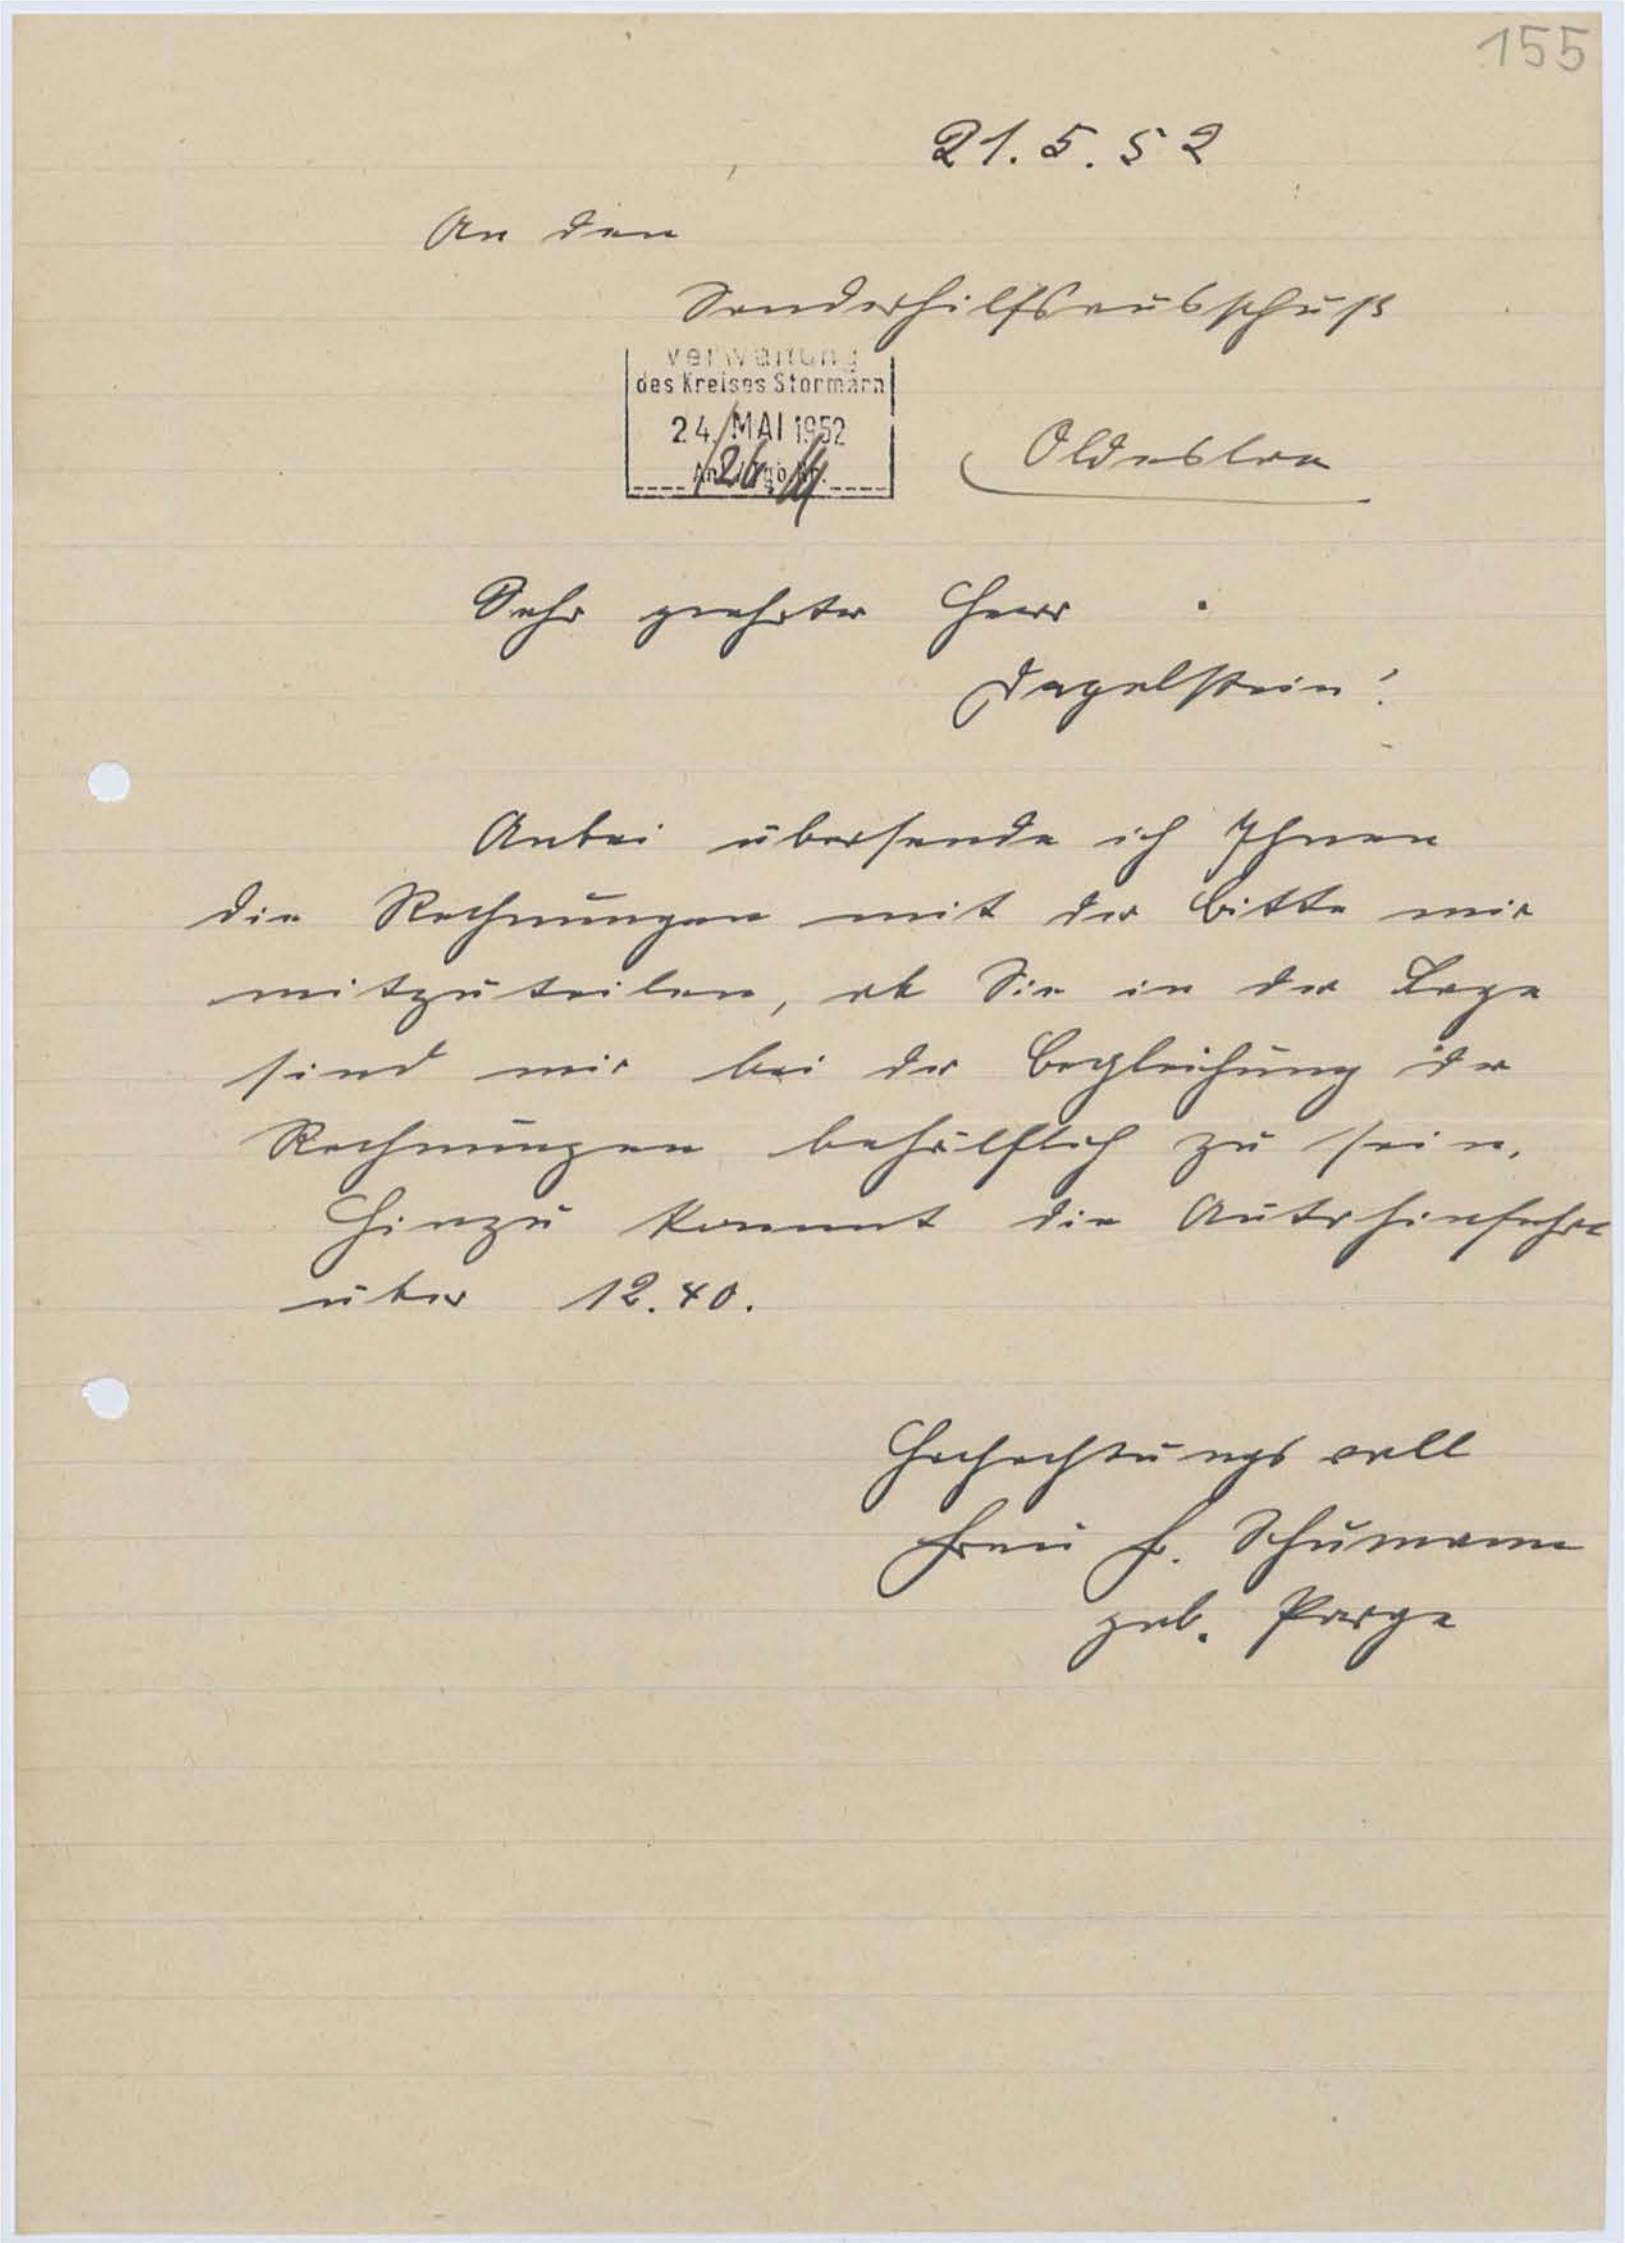 155
21.5.52
An den
Sonderhilfsausschuß
Verwaltung
des Kreises Stormarn
24. MAI 1952
Oldesloe
Sehr geehrter Herr
Dagelstein!
Anbei übersende ich Ihnen
die Rechnungen mit der Bitte mir
mitzuteilen, ob Sie in der Lage
sind mir bei der Begleichung der
Rechnungen behülflich zu sein.
Hinzu kommt die Autohinfahrt
über 12.40.
Hochachtungsvoll
Frau F. Schumann
geb. Porge